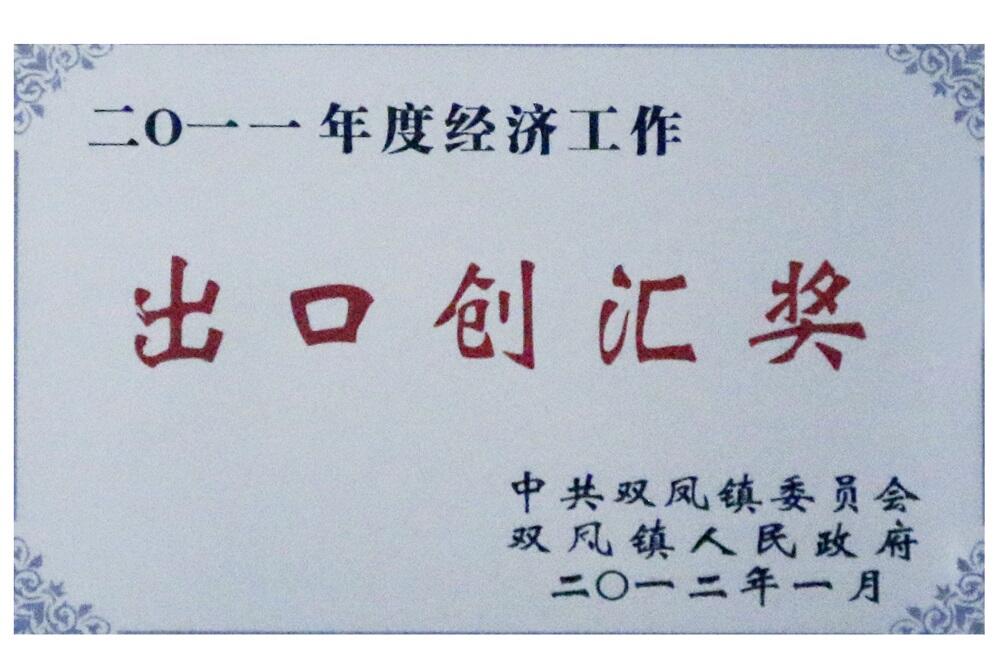 二〇一一年度经济工作
出口创汇奖
中共双凤镇委员会
双凤镇人民政府
二〇一二年一月